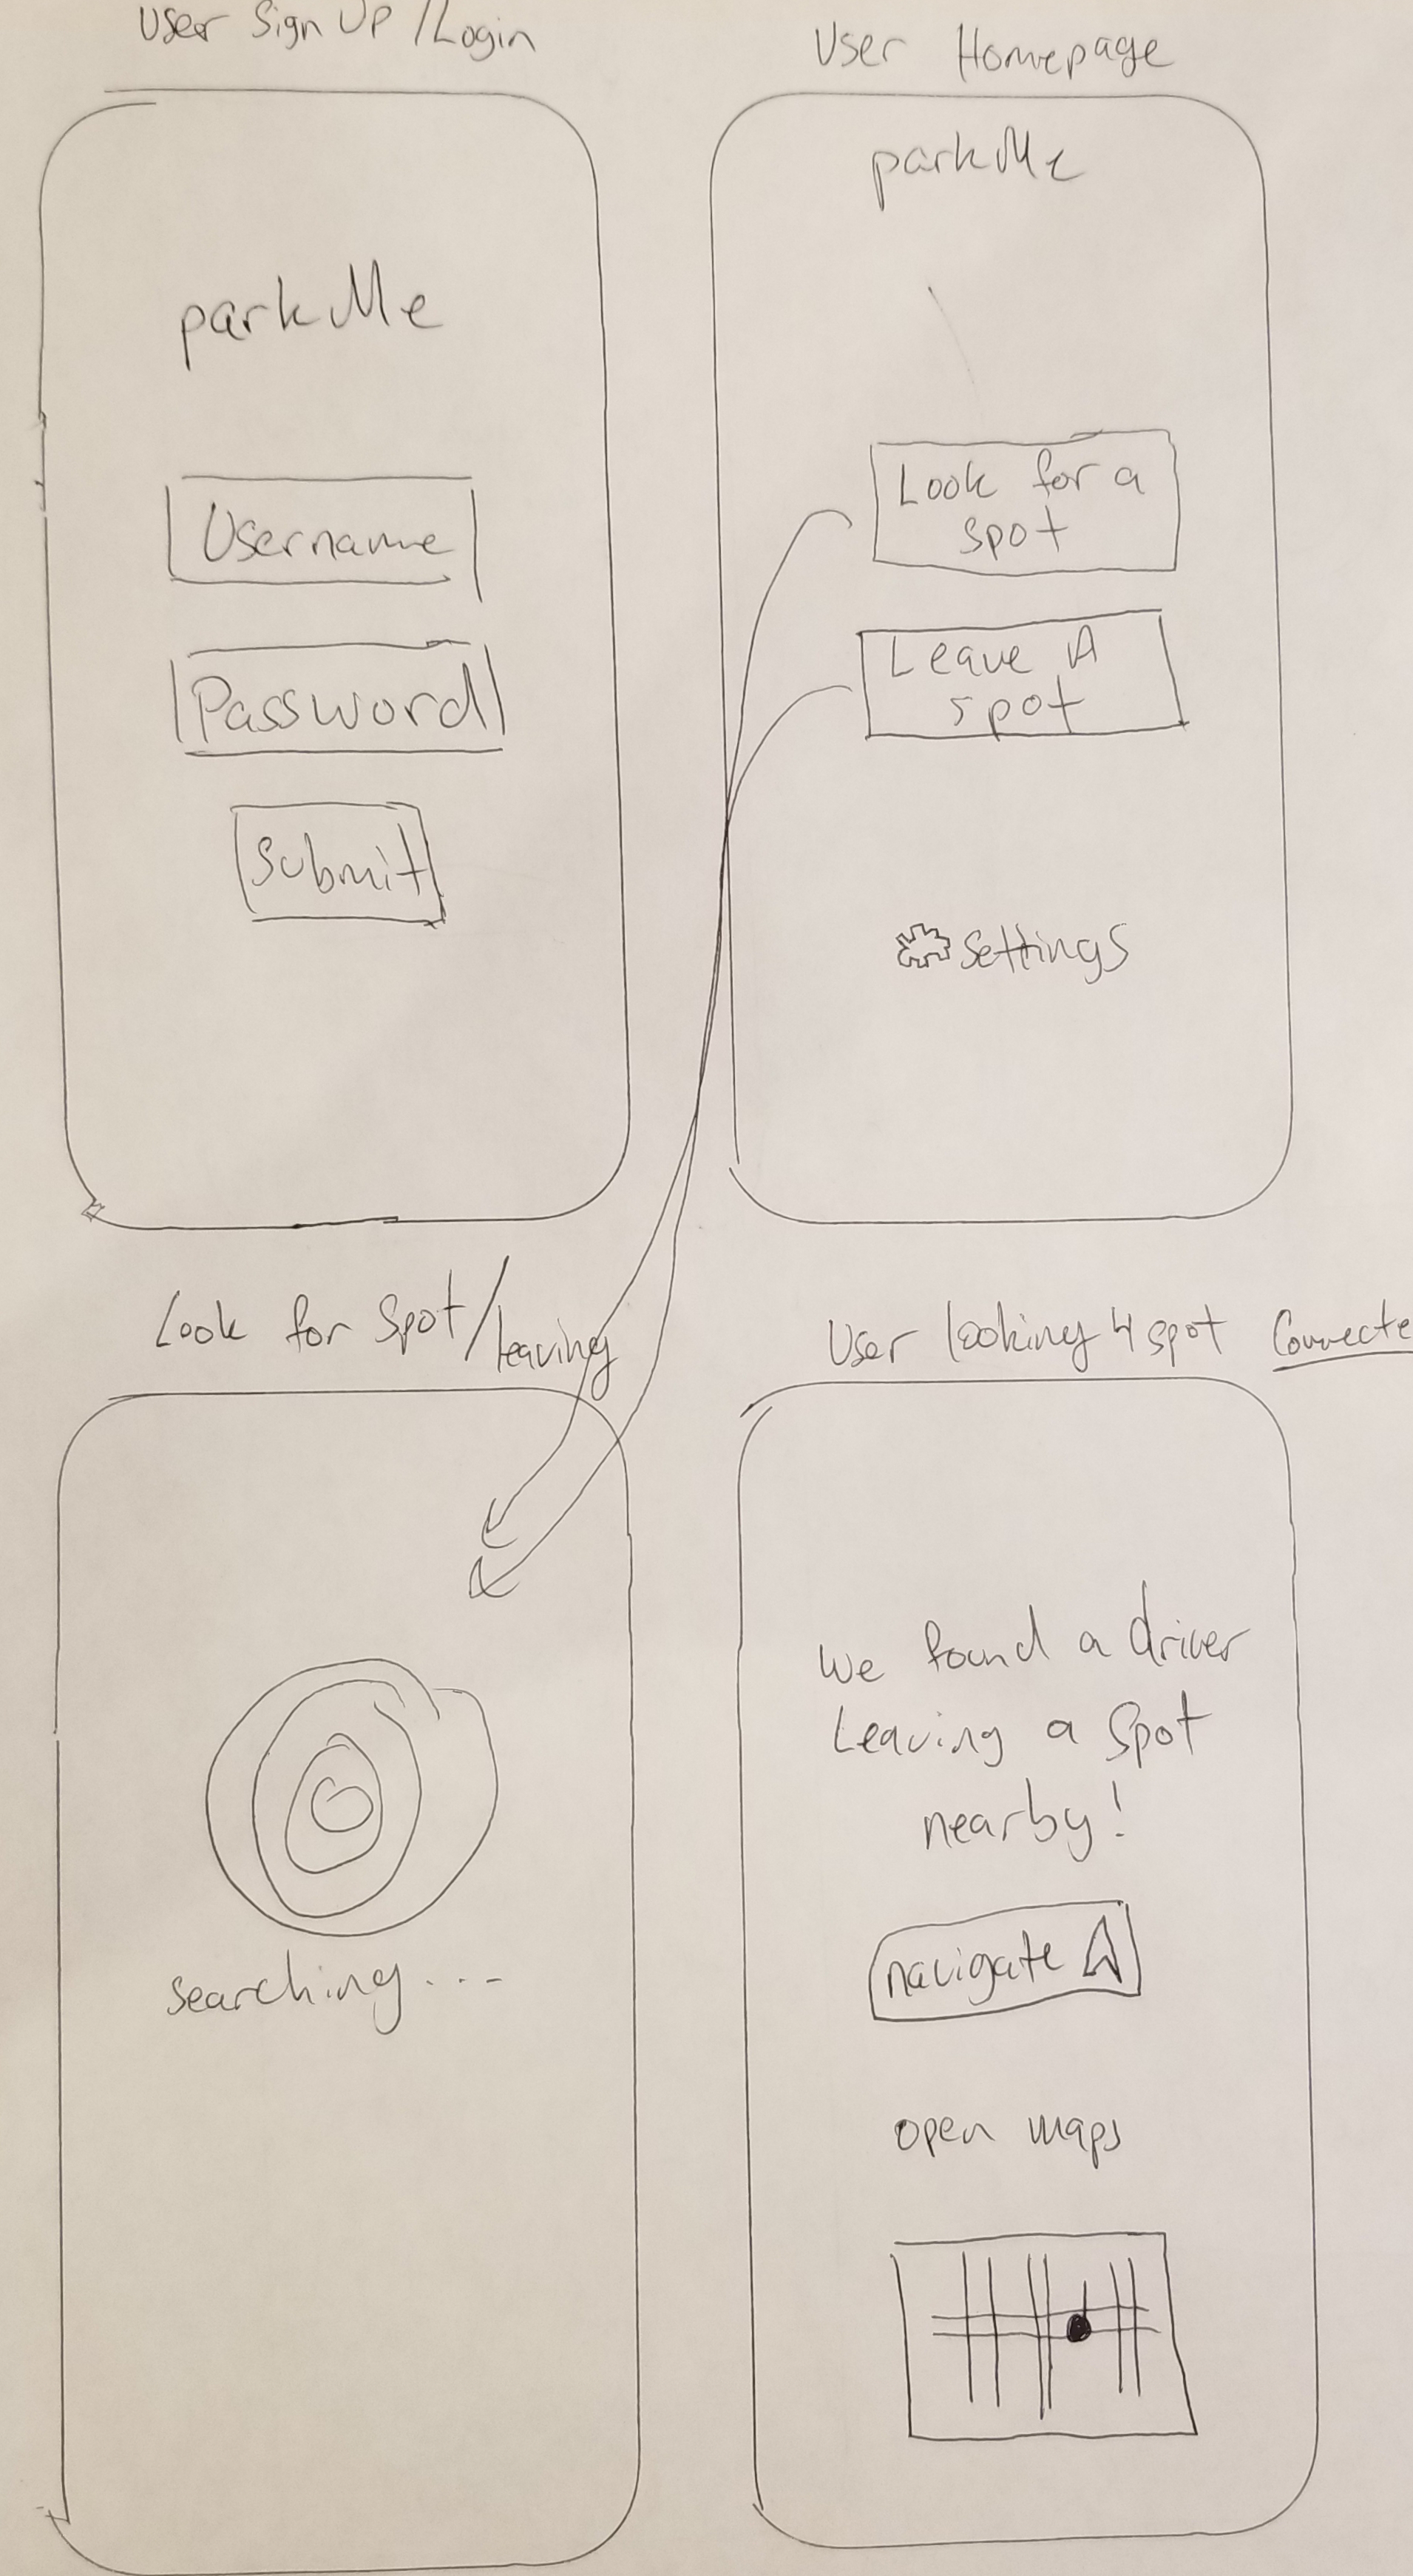 User Sign Up / Login
parkMe
Username
Password
Submit
User Homepage
parkMe
Look for a
spot
Leave A
spot
settings
Look for Spot / leaving
searching...
User looking 4 spot Connecte
We found a driver
Leaving a Spot
nearby!
navigate
open maps